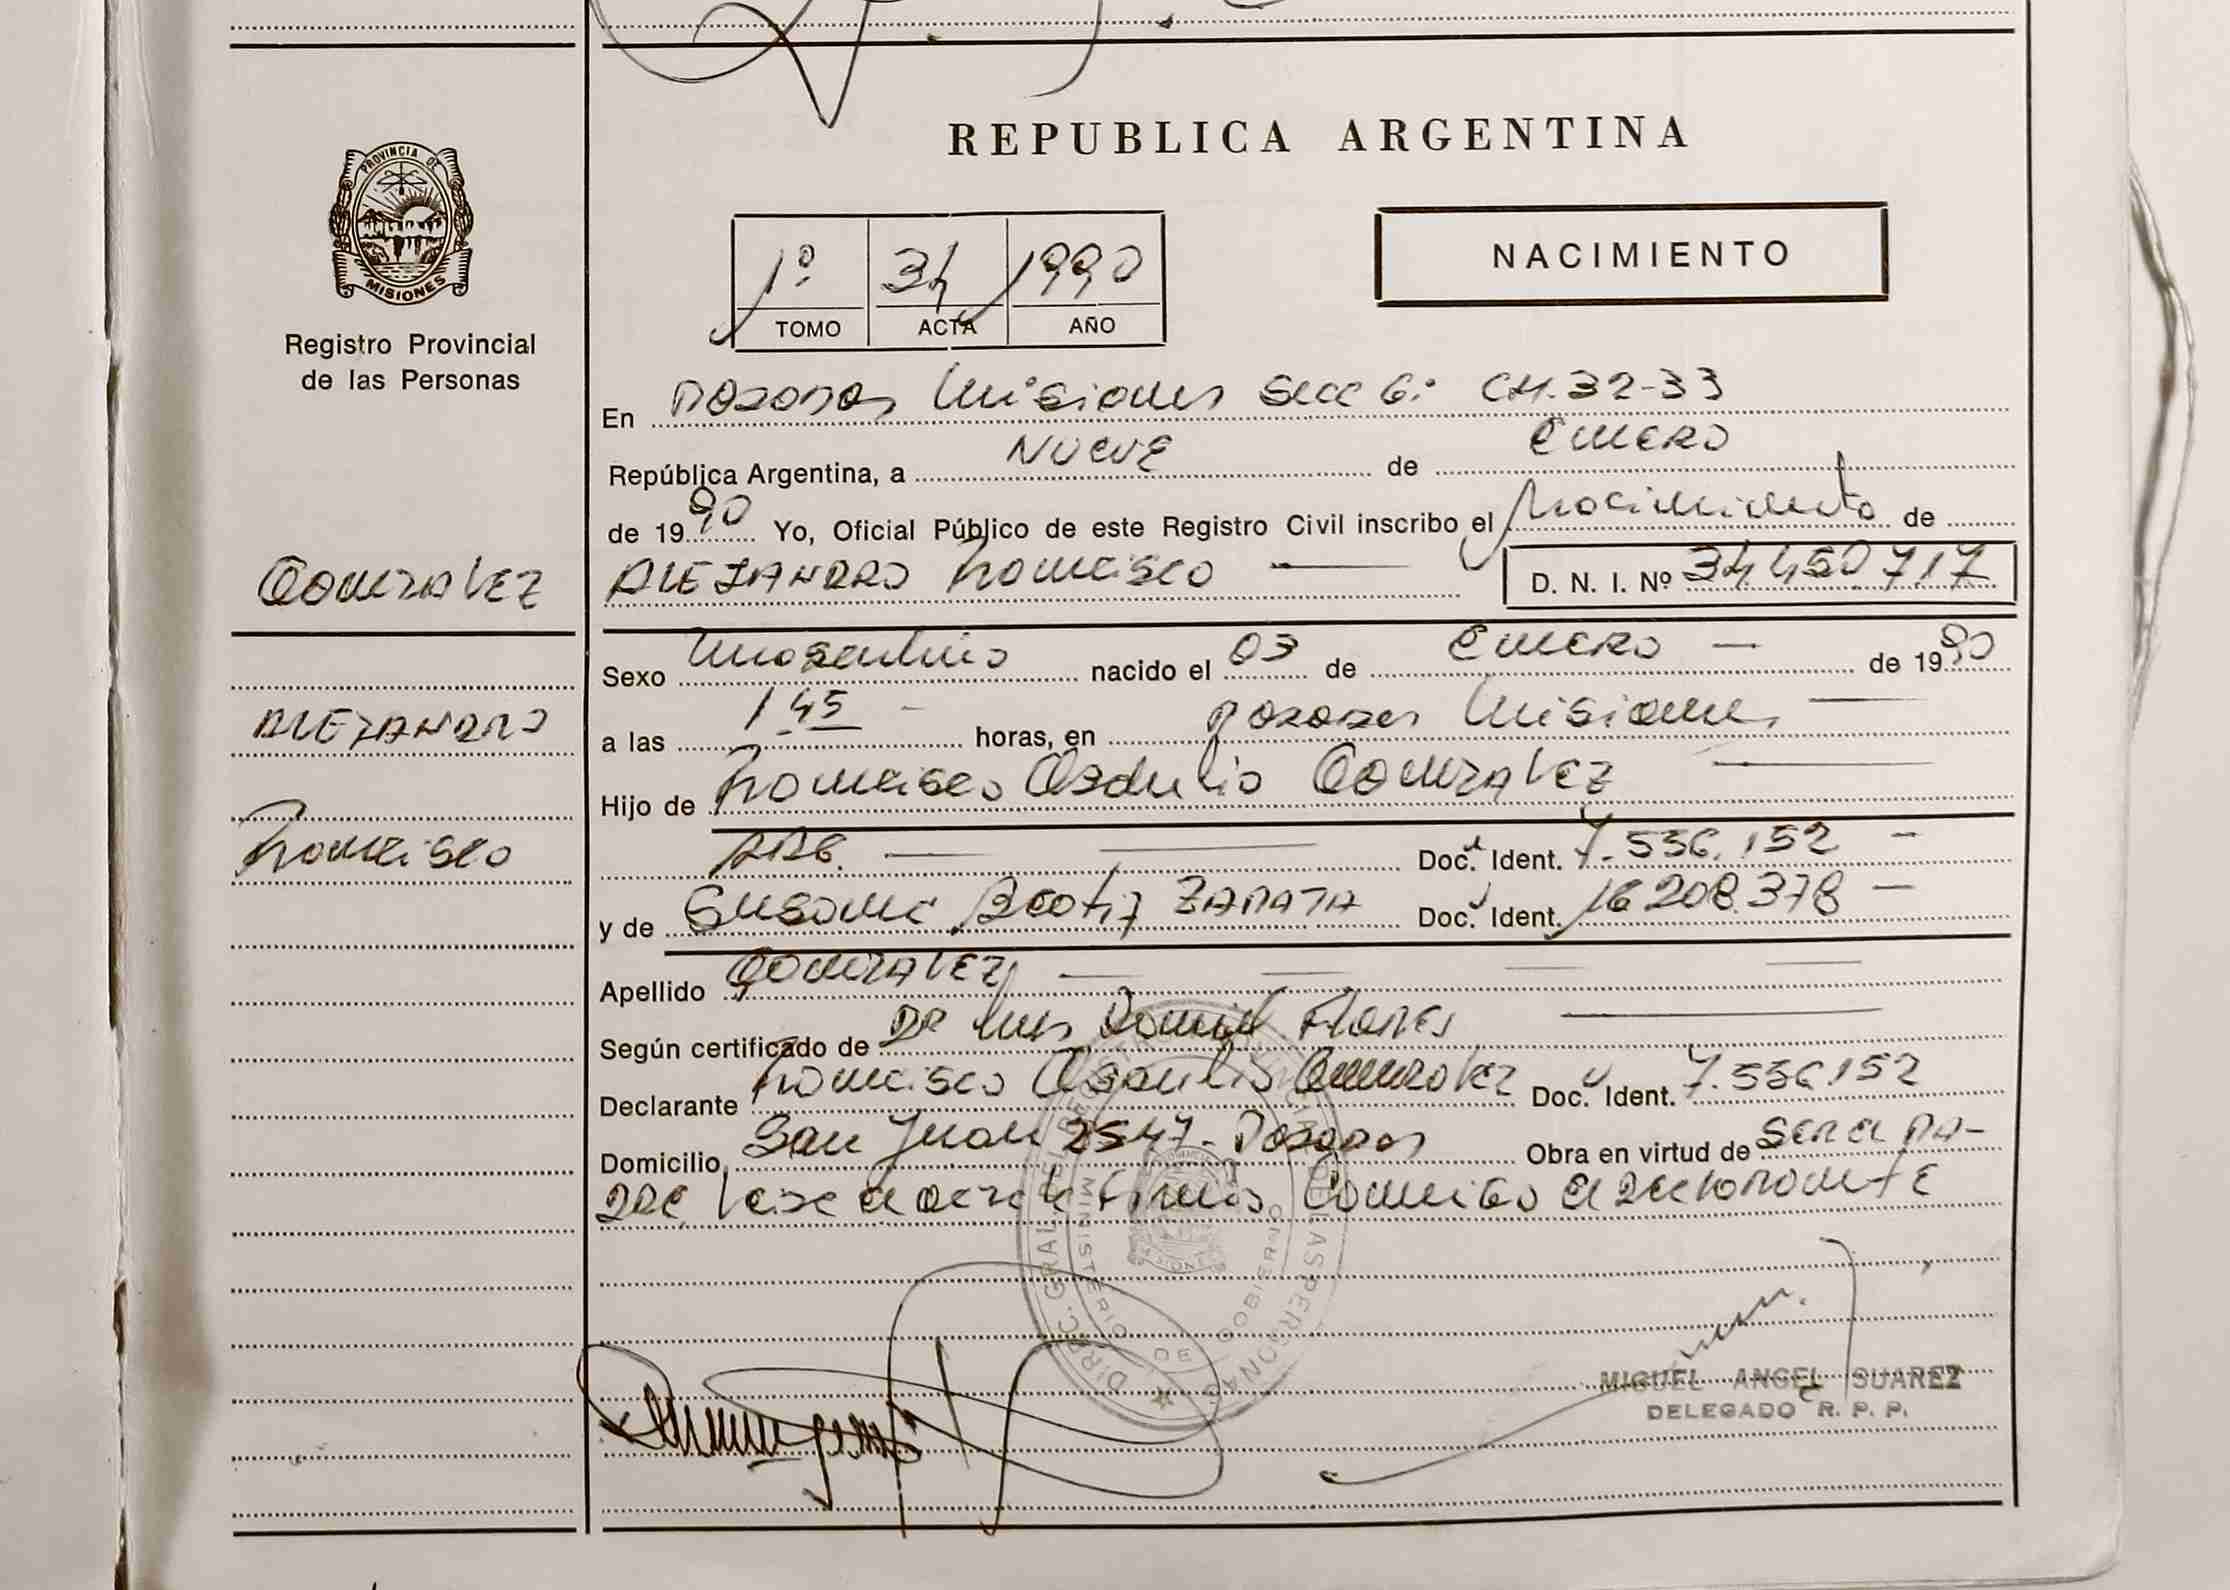 REPUBLICA ARGENTINA
PROVINCIA DE
MISIONES
Registro Provincial
de las Personas
1º 34 1990
TOMO ACTA AÑO
NACIMIENTO
En Posadas Misiones Secc 6: CH.32-33
República Argentina, a Nueve de Enero
de 1990 Yo, Oficial Público de este Registro Civil inscribo el Nacimiento de
Gonzalez
Alejandro Francisco D. N. I. Nº 34450717
Sexo Masculino nacido el 03 de Enero de 1990
Alejandro
a las 1.45 horas, en Posadas Misiones
Hijo de Francisco Gonzalez
Francisco
ARG. Doc. Ident. 7.536.152
y de Susana Beatriz Zapata Doc. Ident. 16.208.378
Apellido Gonzalez
Según certificado de Dr Luis Daniel Flores
Declarante Francisco Gonzalez Doc. Ident. 7.536.152
Domicilio San Juan 2547 - Posadas Obra en virtud de Ser el Pa-
dre Leída el acta la firma Conmigo el declarante
DIREC. GRAL. DEL REGISTRO DE LAS PERSONAS
MINISTERIO DE GOBIERNO
MIGUEL ANGEL SUAREZ
DELEGADO R. P. P.